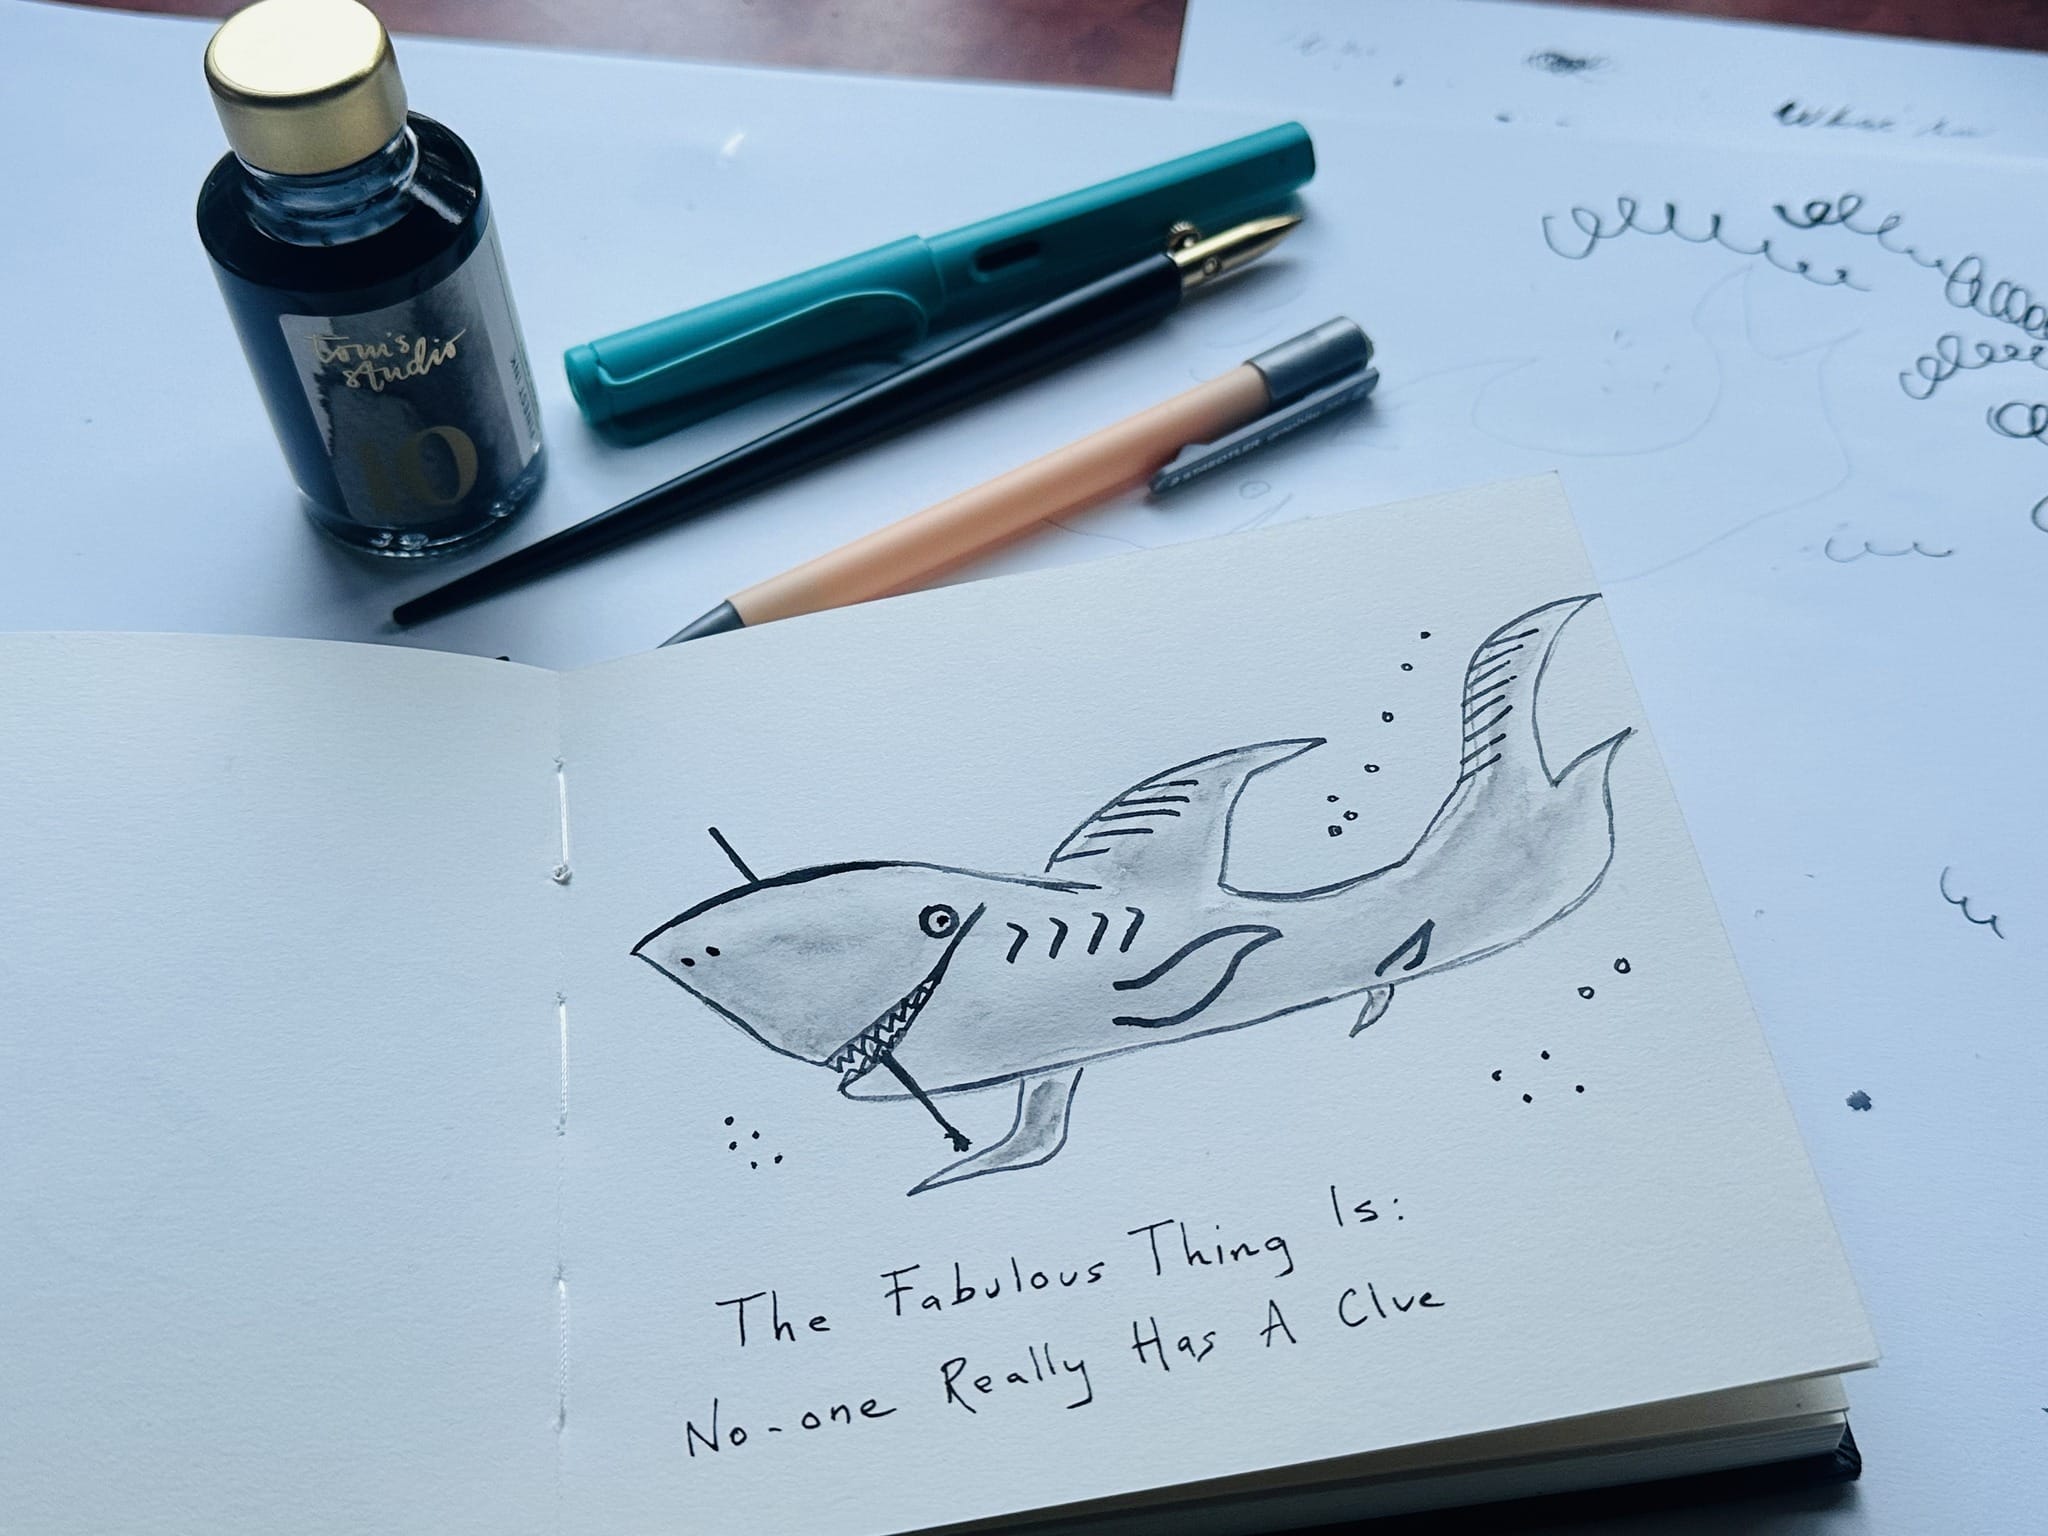 tom's
studio
10
STAEDTLER
The Fabulous Thing Is:
No-one Really Has A Clue